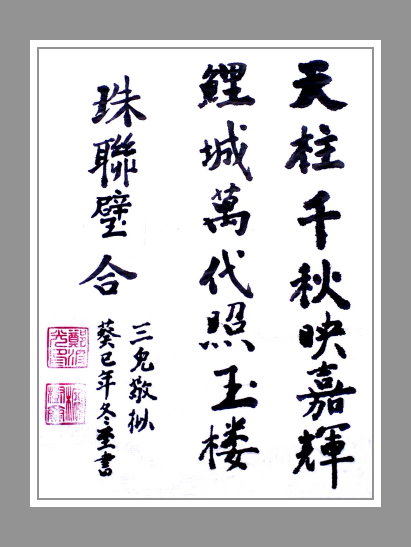 天柱千秋映嘉輝
鯉城萬代照玉楼
珠聯璧合
三兔敬拟
葵巳年冬至書